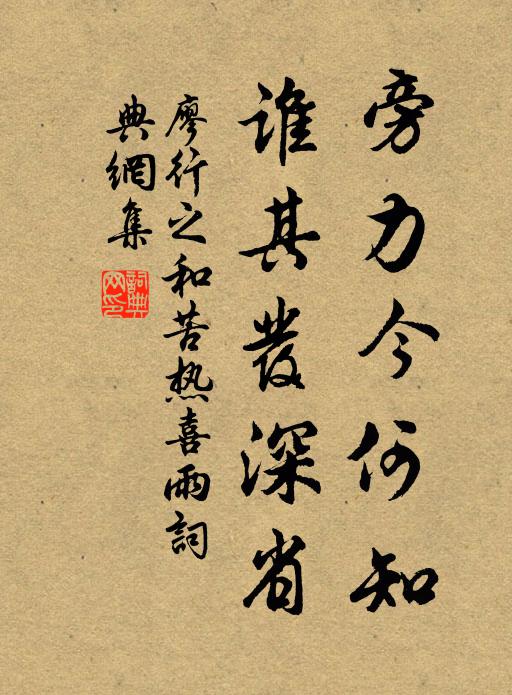 旁力今何知
谁其發深省
廖行之和苦热喜雨詞
典網集
詞典网印